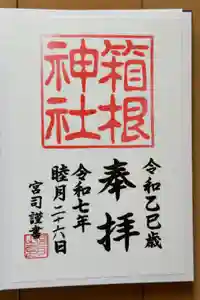 箱根
神社
令和乙巳歳
奉拝
令和七年
睦月二十六日
宮司謹書